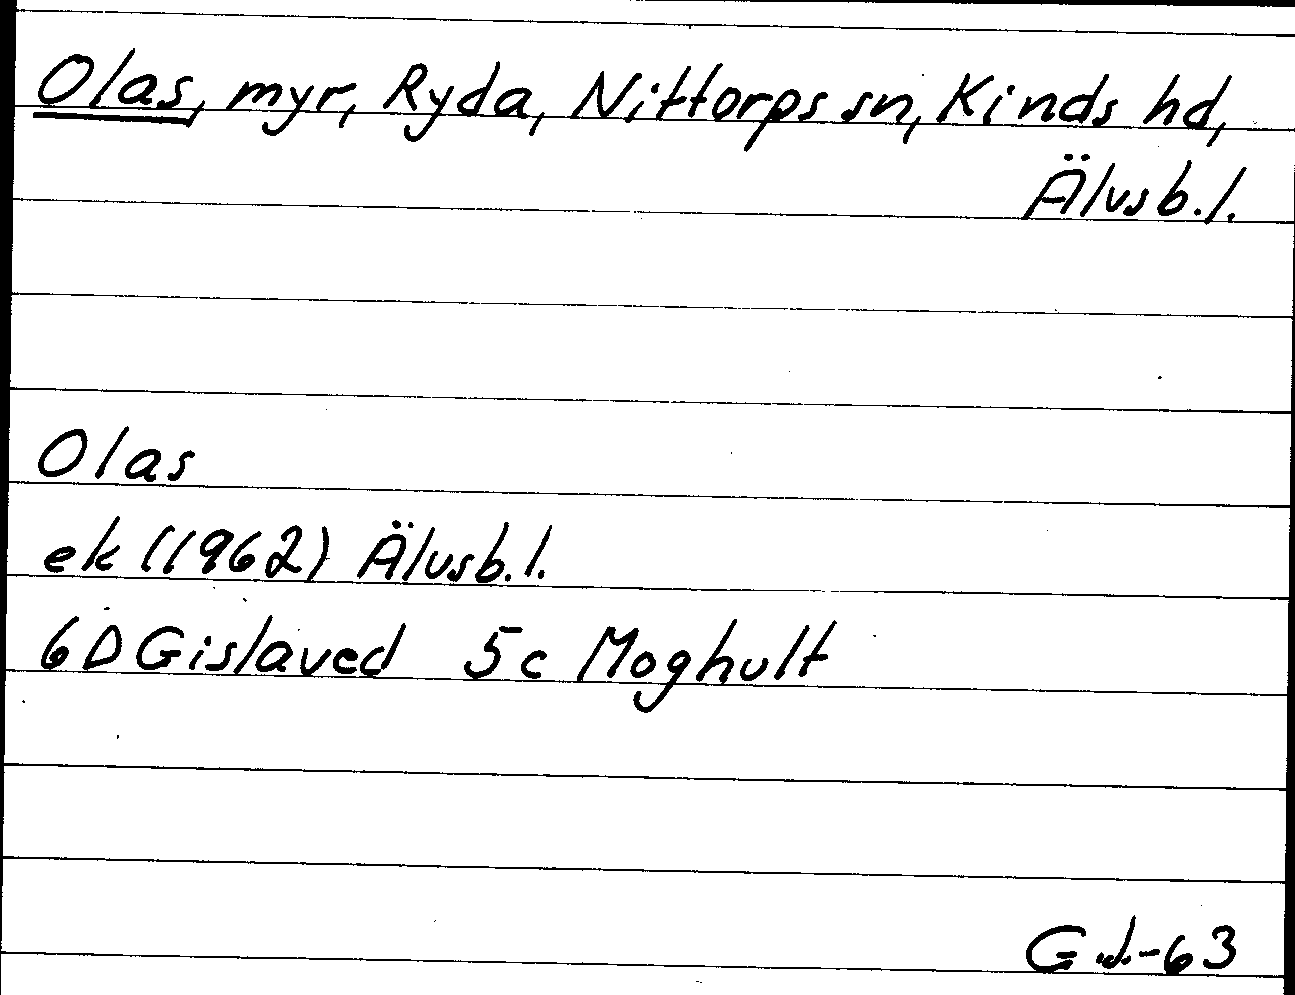 Olas, myr, Ryda, Nittorps sn, Kinds hd,
Älvsb.l.
Olas
ek (1962) Älvsb.l.
6D Gislaved 5c Moghult
G.J.-63